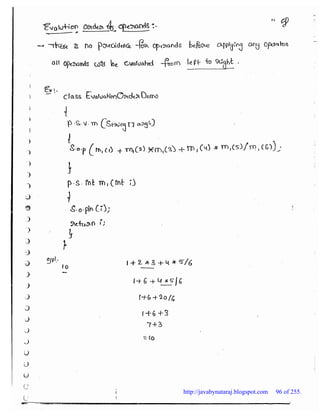 Evalution order of operands :-
→ There is no precidence for operands before applying any operator
all operands will be evaluated from left to right.
Ex:-
class EvaluationOrderDemo
{
p.s.v.m (String[] args)
{
S.o.p (m1(1) + m1(2) * m1(3) + m1(4) * m1(5)/m1(6));
}
p.s. int m1(int i)
{
S.o.pln(i);
return i;
}
}
o/p:-
10
1+2*3+4*5/6
1+6+4*5/6
1+6+20/6
1+6+3
7+3
=10
http://javabynataraj.blogspot.com 96 of 255.